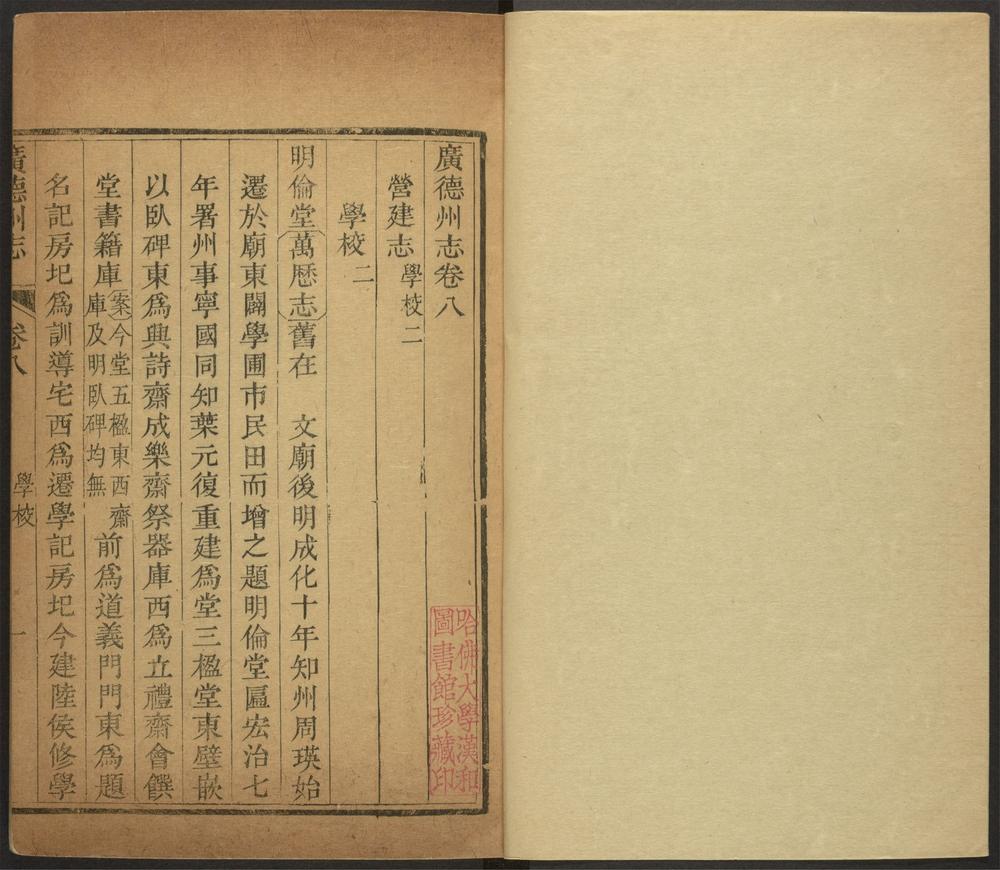 廣德州志卷八
營建志 學校二
學校二
明倫堂萬歷志舊在 文廟後明成化十年知州周瑛始
遷於廟東闢學圃市民田而增之題明倫堂匾宏治七
年署州事寧國同知葉元復重建爲堂三楹堂東壁嵌
以臥碑東爲興詩齋成樂齋祭器庫西爲立禮齋會饌
堂書籍庫案今堂五楹東西齋庫及明臥碑均無前爲道義門門東爲題
名記房圮爲訓導宅西爲遷學記房圮今建陸侯修學
廣德州志 卷八 學校 一
哈佛大學漢和
圖書館珍藏印